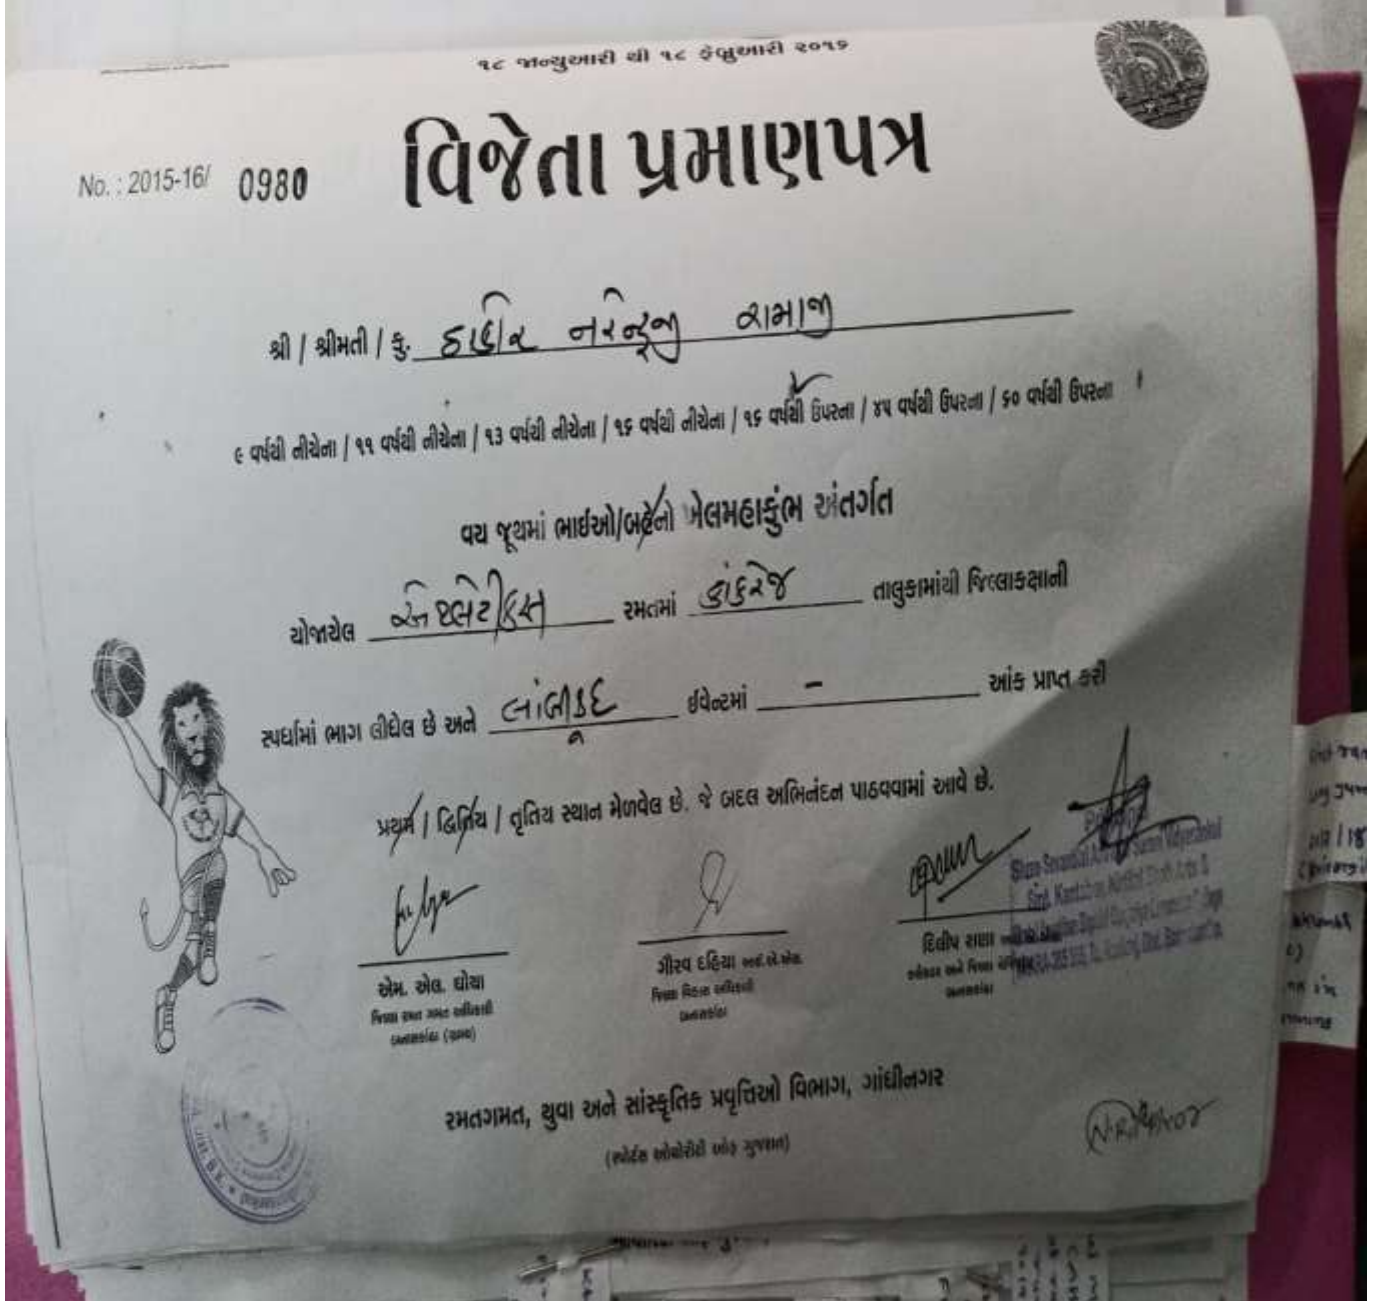 ૧૮ જાન્યુઆરી થી ૧૮ ફેબ્રુઆરી ૨૦૧૬
વિજેતા પ્રમાણપત્ર
No. : 2015-16/ 0980
શ્રી / શ્રીમતી / કુ. ઠાકોર નરેન્દ્રજી રામાજી
૯ વર્ષથી નીચેના / ૧૧ વર્ષથી નીચેના / ૧૩ વર્ષથી નીચેના / ૧૬ વર્ષથી નીચેના / ૧૬ વર્ષથી ઉપરના / ૪૫ વર્ષથી ઉપરના / ૬૦ વર્ષથી ઉપરના
વય જૂથમાં ભાઈઓ/બહેનો ખેલમહાકુંભ અંતર્ગત
યોજાયેલ એથ્લેટીકસ રમતમાં કાંકરેજ તાલુકામાંથી જિલ્લાકક્ષાની
સ્પર્ધામાં ભાગ લીધેલ છે અને લાંબીકૂદ ઈવેન્ટમાં - આંક પ્રાપ્ત કરી
પ્રથમ / દ્વિતિય / તૃતિય સ્થાન મેળવેલ છે. જે બદલ અભિનંદન પાઠવવામાં આવે છે.
Principal
એમ. એલ. ઘોયા
જિલ્લા રમત ગમત અધિકારી
બનાસકાંઠા (ગ્રામ્ય)
ગૌરવ દહિયા આઈ.એ.એસ.
જિલ્લા વિકાસ અધિકારી
બનાસકાંઠા
દિલીપ રાણા
કલેક્ટર અને જિલ્લા
બનાસકાંઠા
રમતગમત, યુવા અને સાંસ્કૃતિક પ્રવૃત્તિઓ વિભાગ, ગાંધીનગર
(સ્પોર્ટસ ઓથોરીટી ઓફ ગુજરાત)